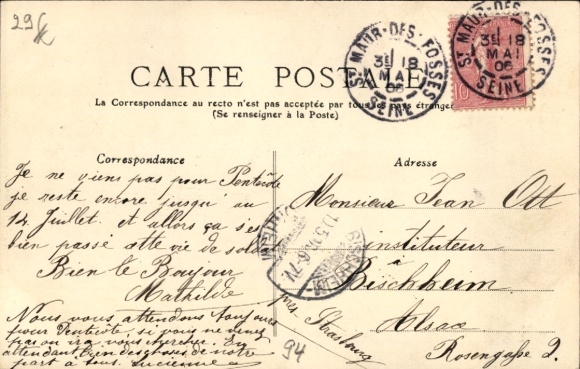 29
CARTE POSTALE
La Correspondance au recto n'est pas acceptée par tous les pays étrangers
(Se renseigner à la Poste)
ST MAUR-DES-FOSSES
3E 18
MAI
06
SEINE
ST MAUR-DES-FOSSES
3E 18
MAI
06
SEINE
10
Correspondance
Je ne viens pas pour Pentecôte
je reste encore jusqu'au
14 Juillet. et allors ça s'est
bien passé cette vie de
Bien le Bonjour
Mathilde
Nous vous attendons toujours
pour Pentecôte, si vous ne venez
pas on ira vous chercher. En
attendant bien des choses de notre
part à tous. Lucienne
Adresse
Monsieur Jean Ott
instituteur
à
Bischheim
près Strasbourg
Alsace
Rosengaße 2.
BISCHHEIM
94